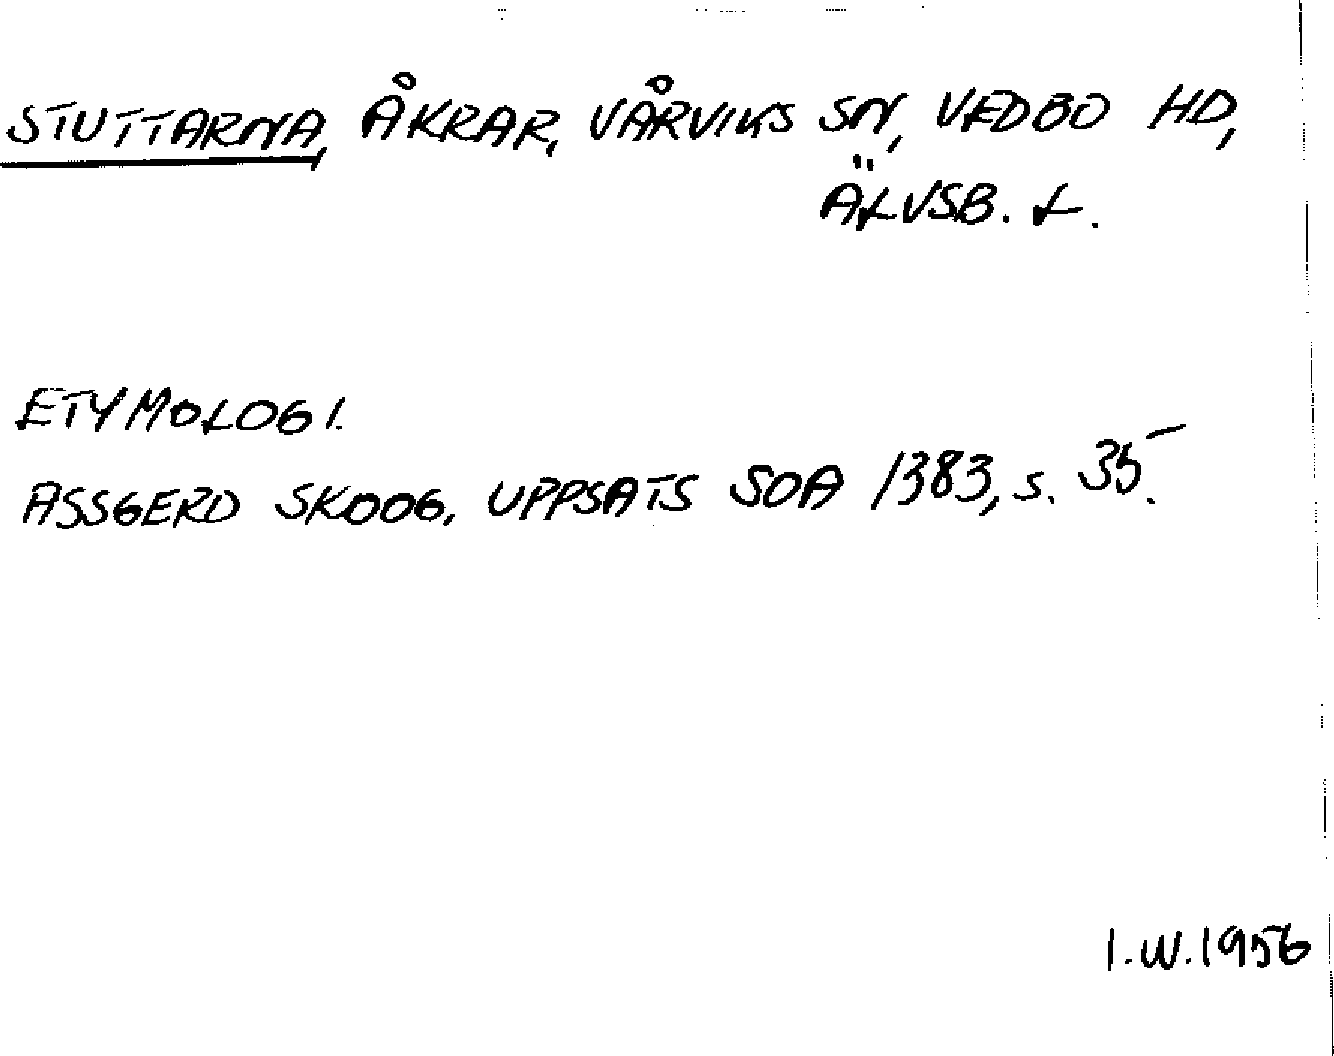 STUTTARNA, ÅKRAR, VÅRVIKS SN, VEDBO HD,
ÄLVSB. L.
ETYMOLOGI.
ASSGERD SKOOG, UPPSATS SOA 1383, s. 35.
I.W.1956